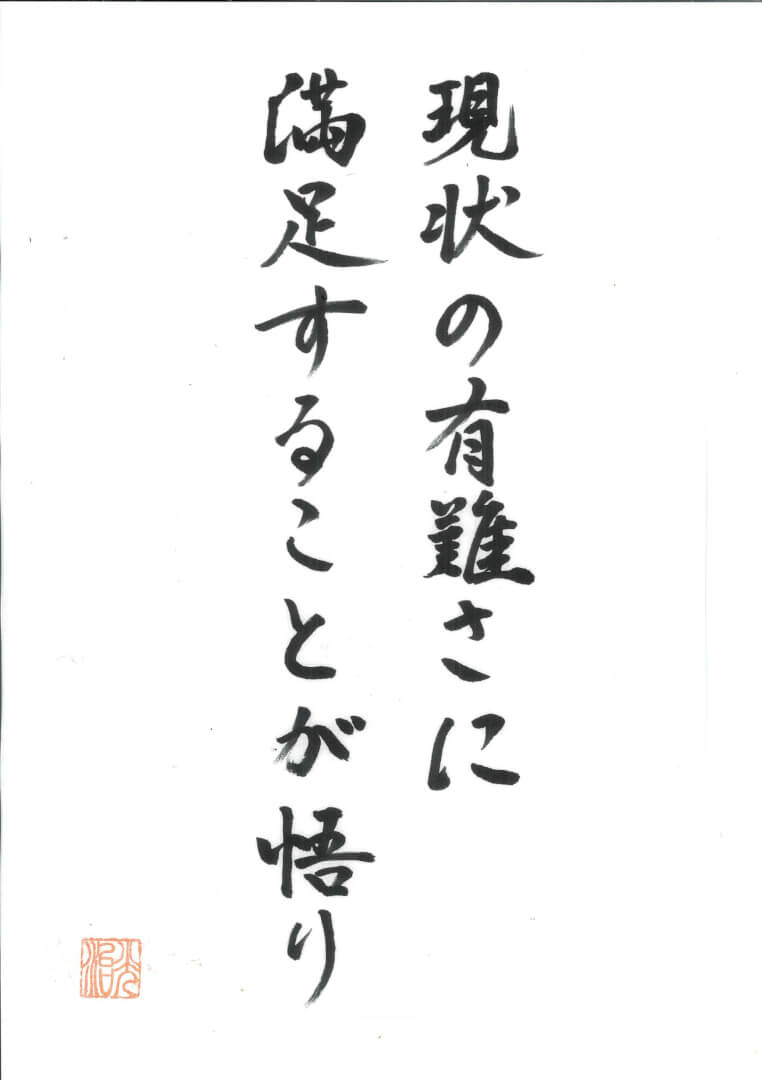 現状の有難さに
満足することが悟り